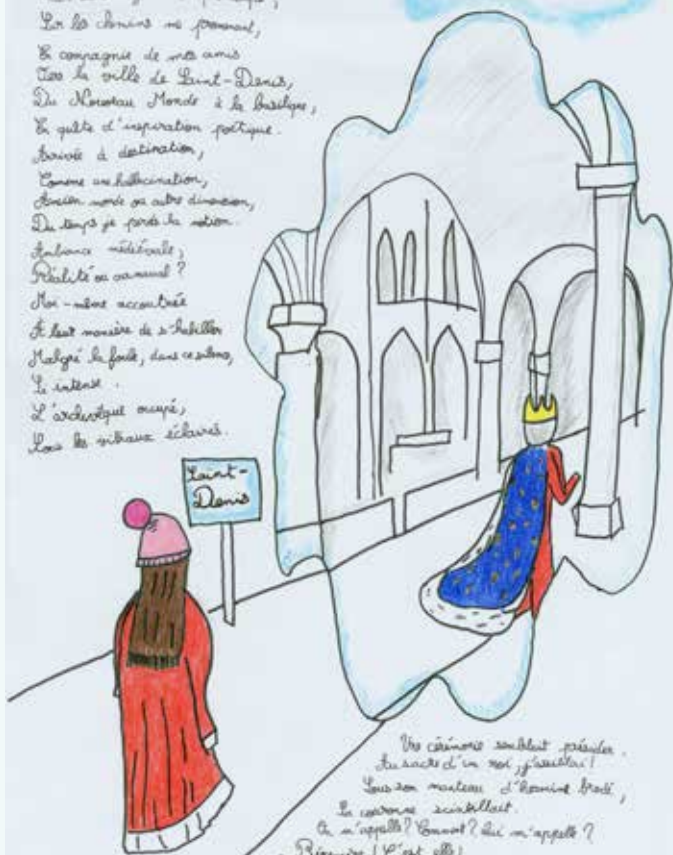 Sur les chemins me promenant,
En compagnie de mes amis
Vers la ville de Saint-Denis,
Du Nouveau Monde à la basilique,
En quête d'inspiration poétique.
Arrivée à destination,
Comme une hallucination,
Ancien monde ou autre dimension,
Du temps je perds la notion.
Ambiance médiévale,
Réalité ou carnaval ?
Moi-même accoutrée
À leur manière de s'habiller
Malgré la foule, dans ce silence,
Si intense.
L'archevêque occupé,
Sous les vitraux éclairés.
Saint-
Denis
Une cérémonie semblait présider.
Au sacre d'un roi, j'assistai !
Sous son manteau d'hermine brodé,
Sa couronne scintillait.
On m'appelle ? Comment ? Qui m'appelle ?
! C'est elle !